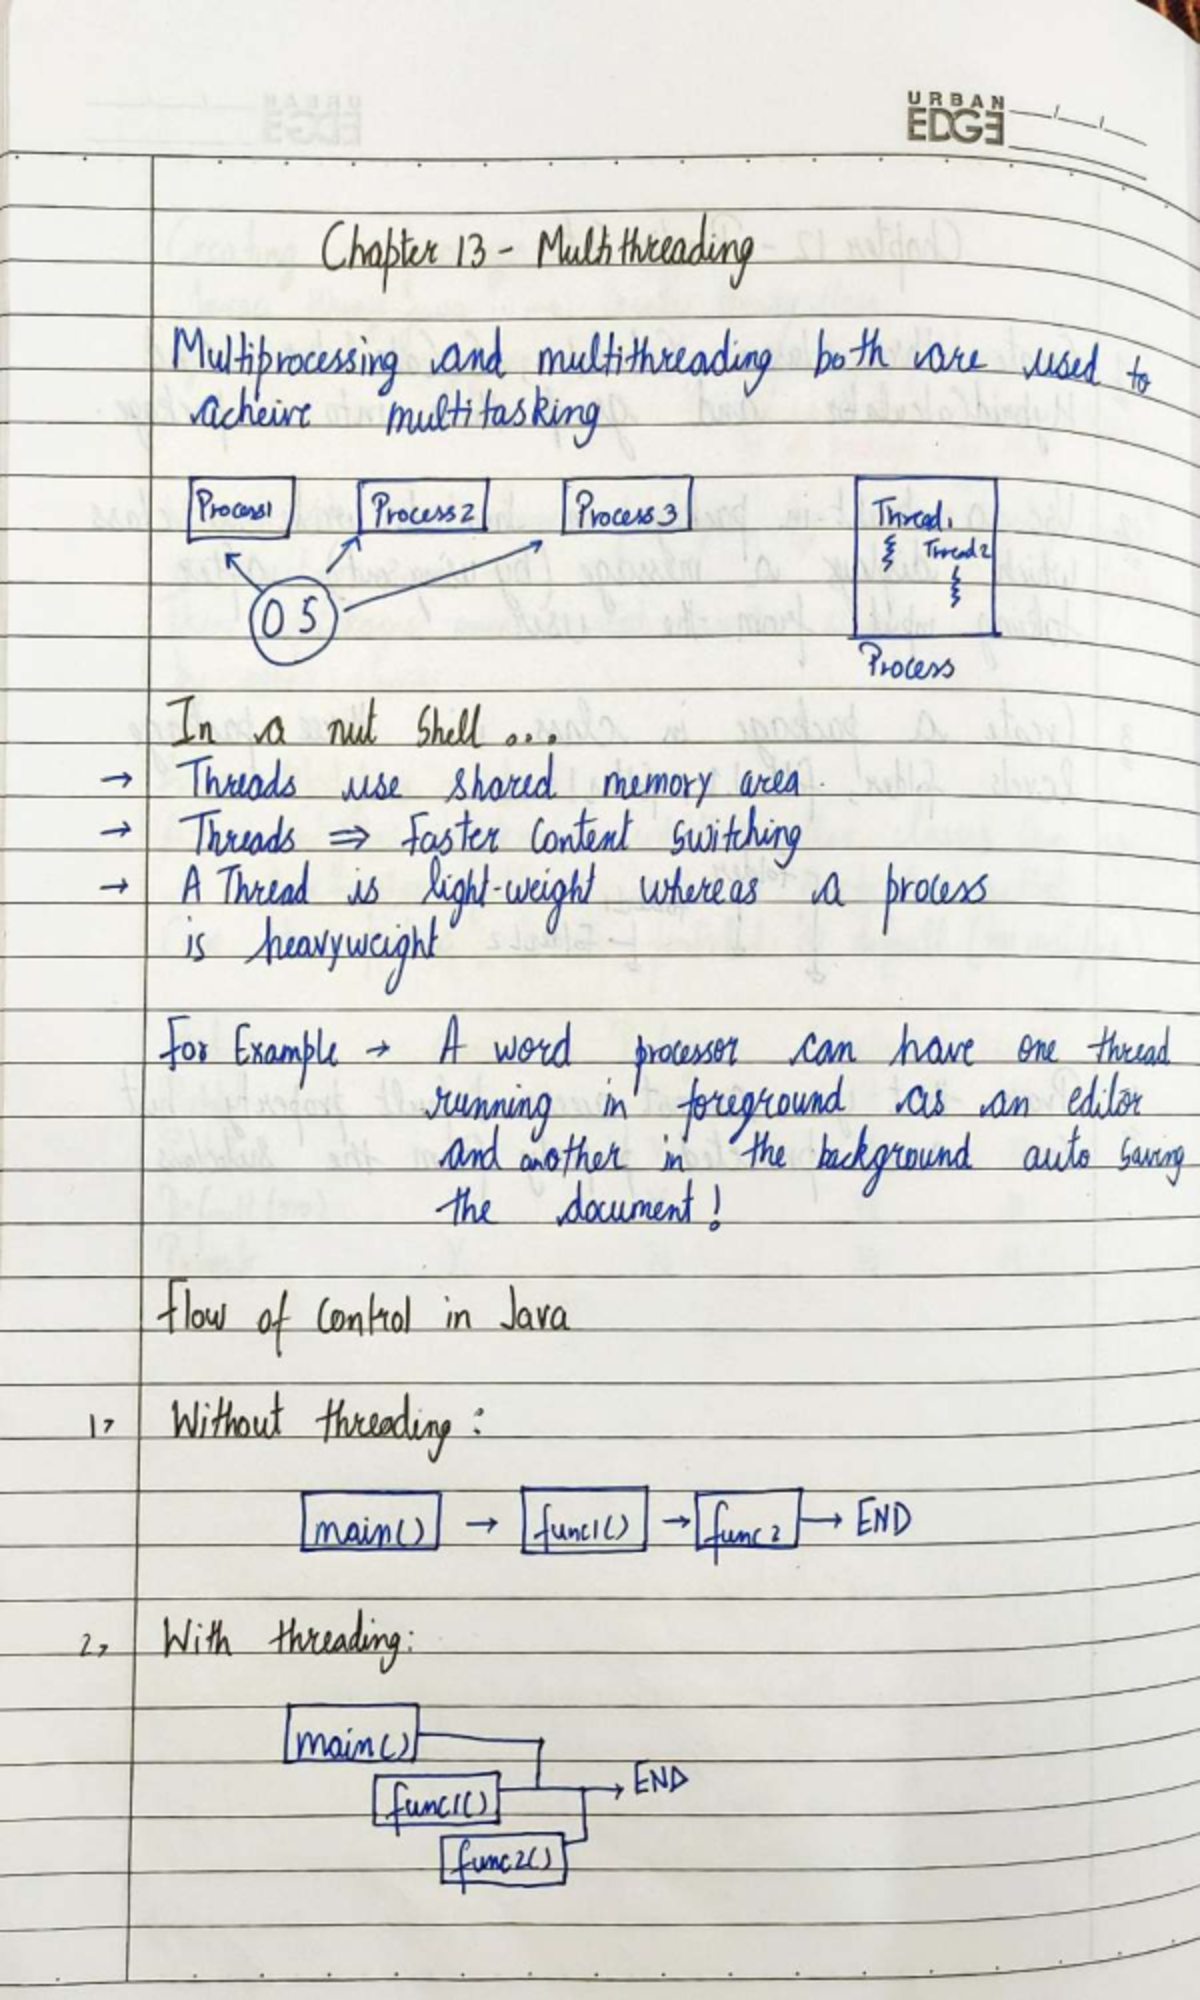 URBAN
EDGE
Chapter 13 - Multithreading
Multiprocessing and multithreading both are used to
acheive multitasking
Process1 Process2 Process3
Thread1
Thread2
OS
Process
In a nut shell ....
→ Threads use shared memory area.
→ Threads ⇒ Faster Content Switching
→ A Thread is light-weight whereas a process
is heavyweight
For Example → A word processor can have one thread
running in foreground as an editor
and another in the background auto saving
the document!
Flow of Control in Java
1> Without threading:
main() → func1() → func2 → END
2> With threading:
main()
func1() → END
func2()